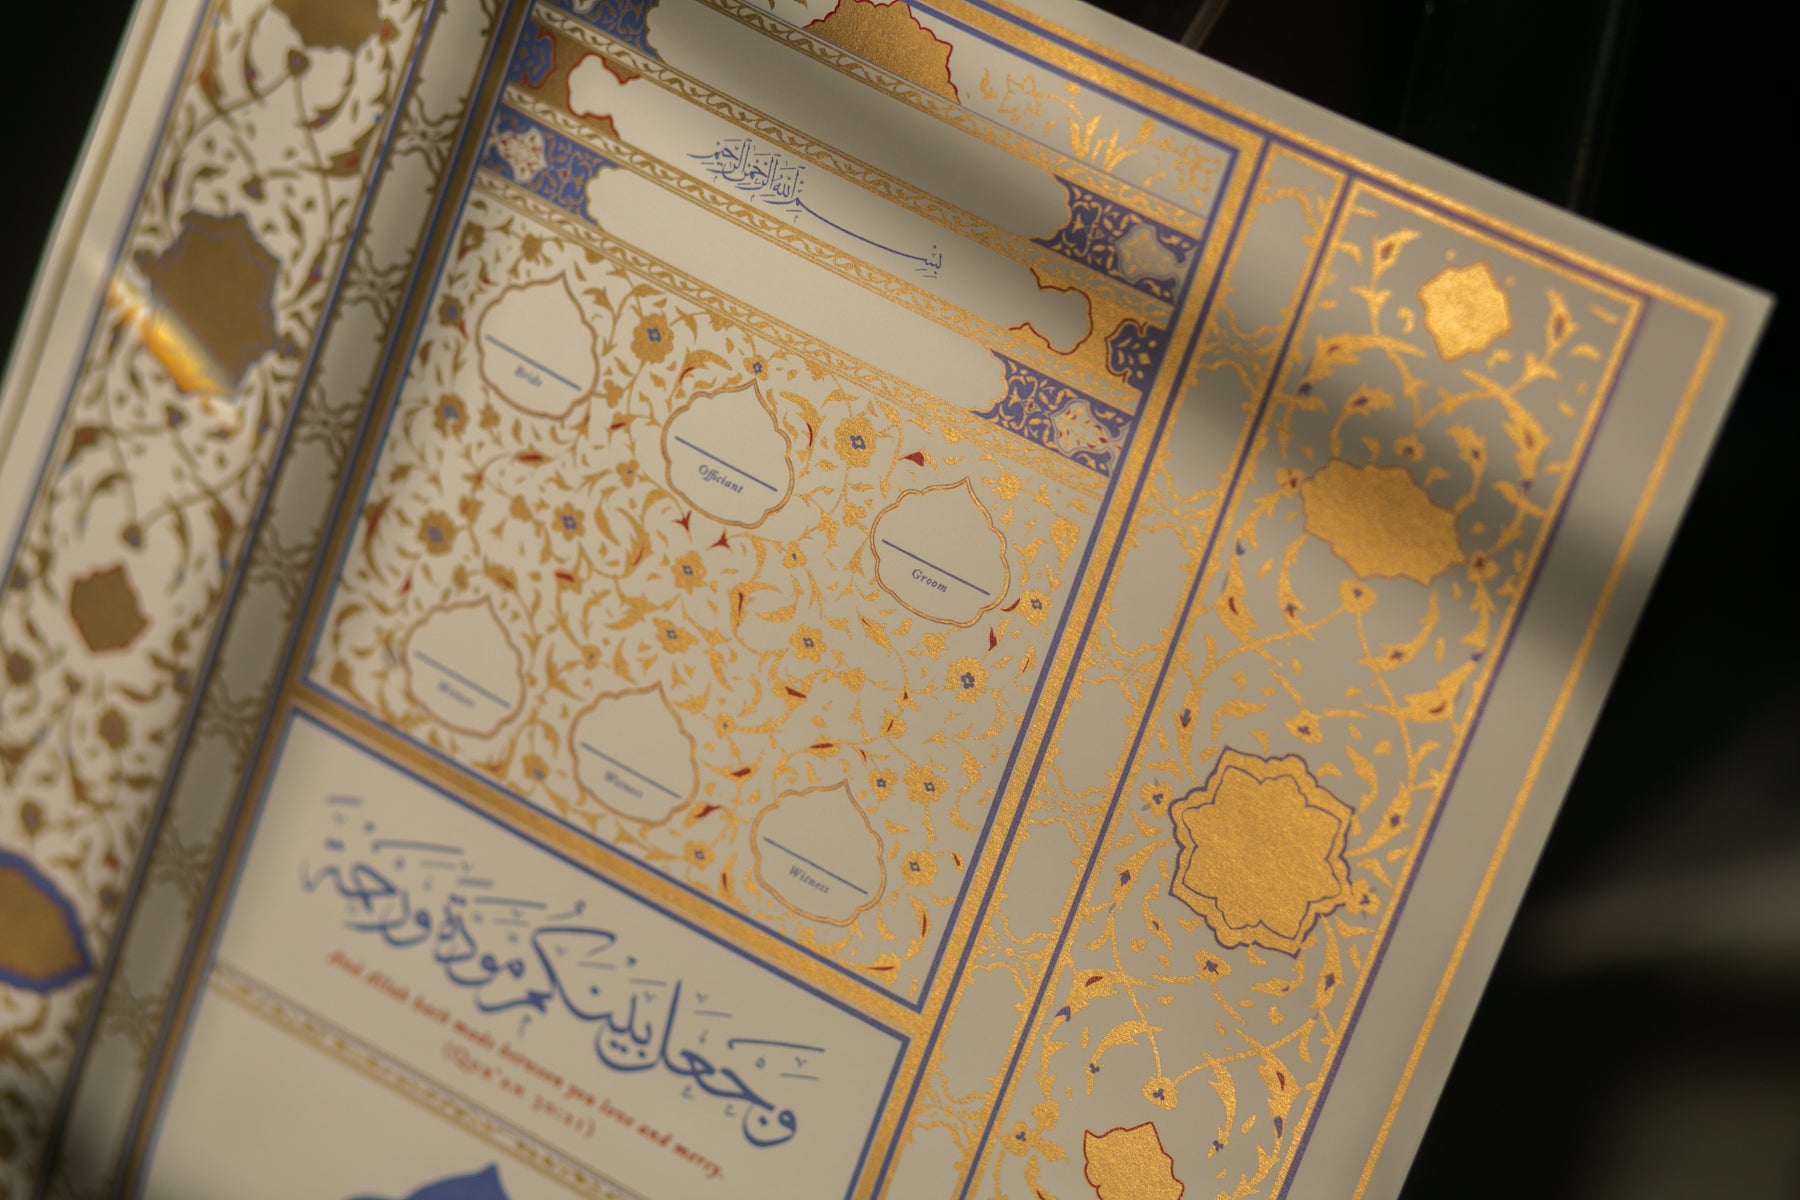 بِسْمِ اللهِ الرَّحْمٰنِ الرَّحِيْمِ
Bride
Officiant
Groom
Witness
Witness
Witness
وَجَعَلَ بَيْنَكُمْ مَوَدَّةً وَرَحْمَةً
And Allah hath made between you love and mercy.
(Qur'an 30:21)